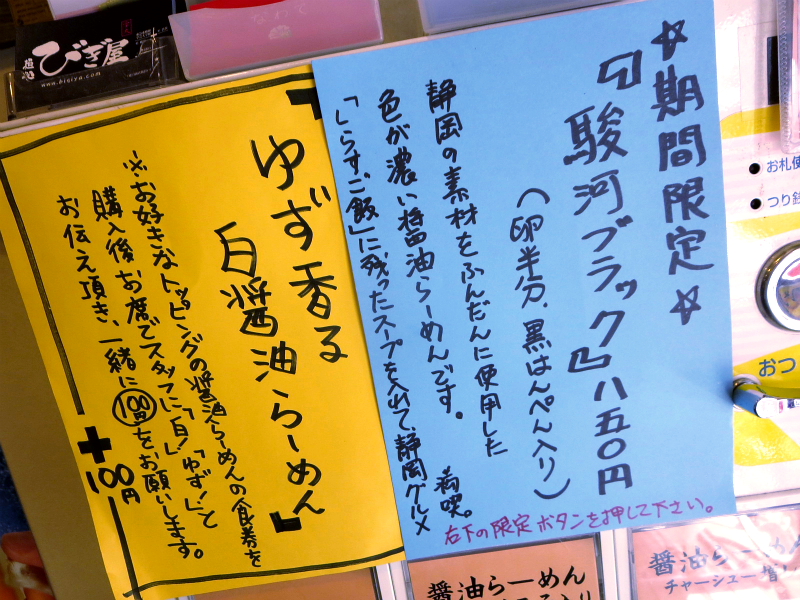 びぎ屋
www.bigiya.com
☆期間限定☆
『駿河ブラック』八五〇円
(卵半分、黒はんぺん入り)
静岡の素材をふんだんに使用した
色が濃い醤油らーめんです。
「しらすご飯」に残ったスープを入れて、静岡グルメ
満喫。
右下の限定ボタンを押して下さい。
ゆず香る
白醤油らーめん』
※お好きなトッピングの醤油らーめんの食券を
購入後お席でスタッフに「白!」「ゆず!」と
お伝え頂き、一緒に100円をお願いします。
+100円
お札
つり銭
おつ
醤油らーめん
醤油らーめん
チャーシュー増し